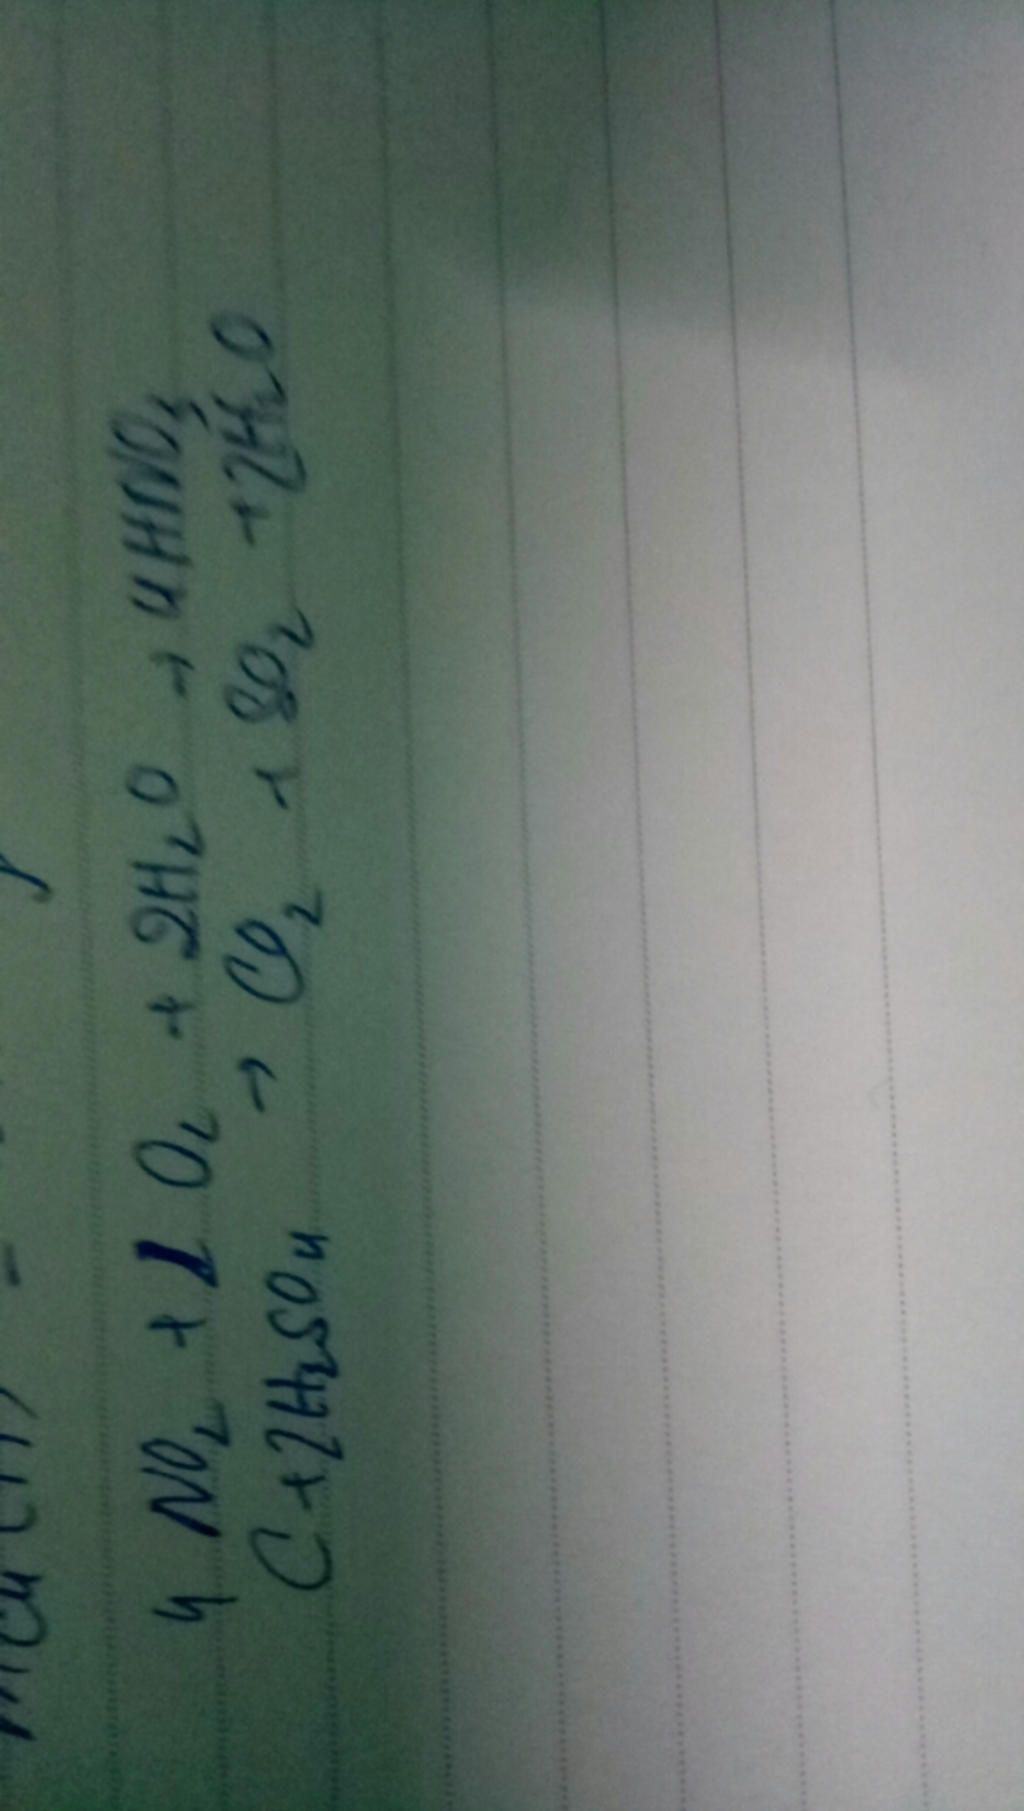 4 NO₂ + 1 O₂ + 2H₂O → 4HNO₃
C + 2H₂SO₄ → CO₂ + SO₂ + 2H₂O